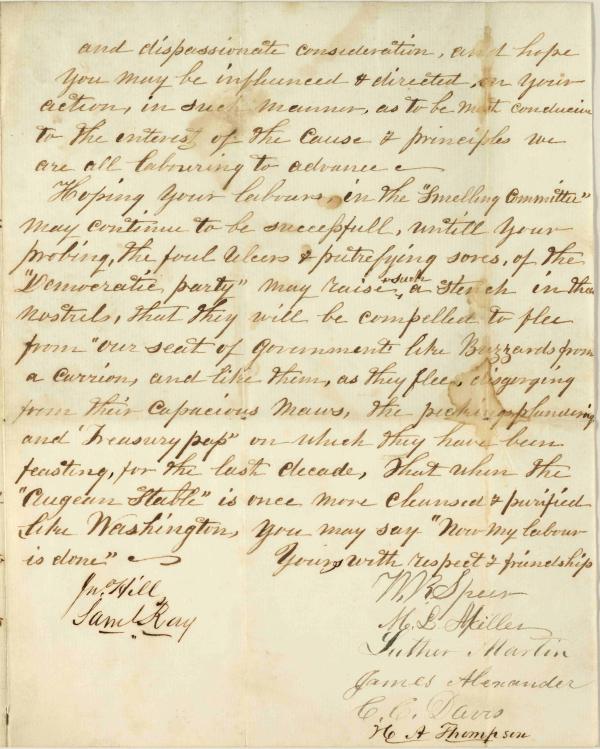 and dispassionate consideration, and hope
you may be influenced & directed, in your
action, in such manner, as to be most conducive
to the interest of the cause & principles we
are all labouring to advance
Hoping your labours, in the "Smelling Committee"
may continue to be successfull, untill your
probing, the foul ulcers & putrefying sores, of the
"Democratic party" may raise such a stench in their
nostrils, that they will be compelled to flee
from "our seat of government" like Buzzards from
a carrion, and like them, as they flee, disgorging
from their capacious maws, the pickings plundering
and "Treasury pap" on which they have been
feasting, for the last decade, that when the
"Augean Stable" is once more cleansed & purified
like Washington, you may say "Now my labour
is done" Yours with respect & friendship
Jno. Hill
Saml Ray
W. R. Speer
M. L. Miller
Luther Martin
James Alexander
C. C. Davis
H A Thompson